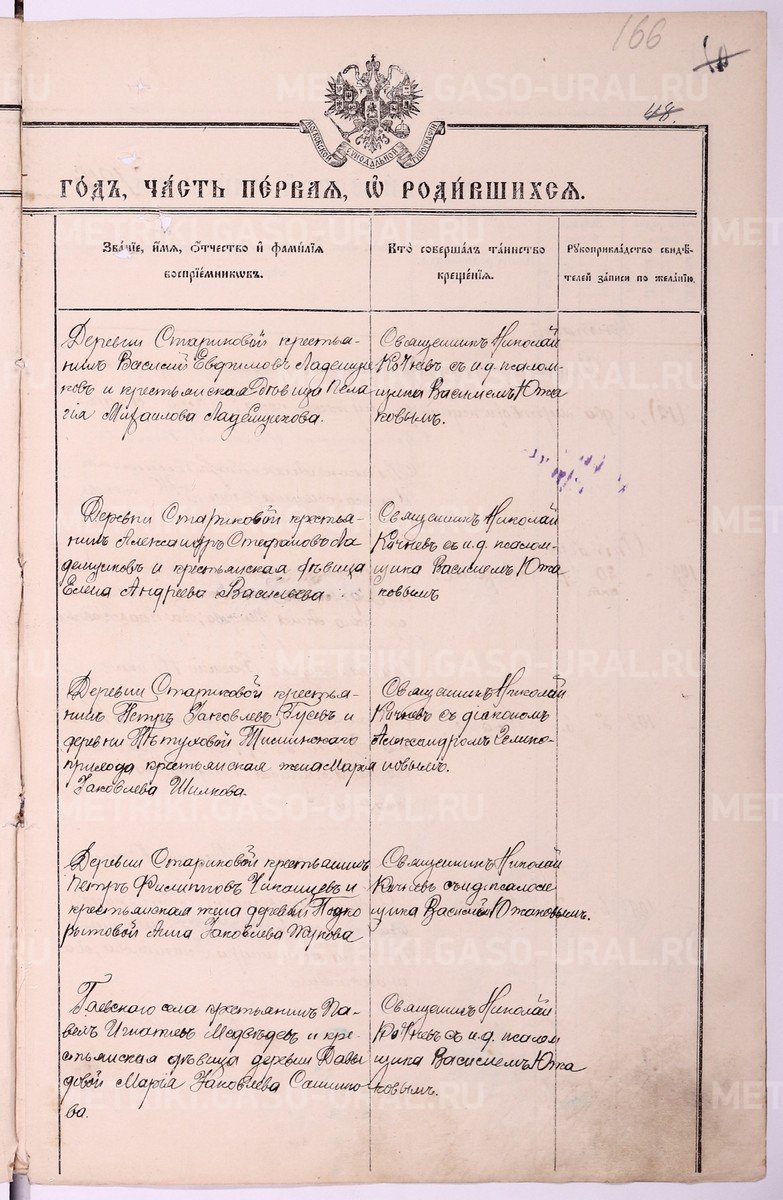 166
10
48.
МОСКОВСКОЙ СѴНОДАЛЬНОЙ ТИПОГРАФІИ
ГО́ДЪ, ЧА́СТЬ ПЕ́РВАЯ, Ѡ҆ РОДИ́ВШИХСЯ.
Зва́нїе, и҆́мя, ѻ҆́тчество и҆ фами́лїя
воспрїе́мникѡвъ.
Кто̀ соверша́лъ та́инство
креще́нїя.
Рꙋкоприкла́дство свидѣ́-
телей за́писи по жела́нїю.
Деревни Стариковой крестья-
нинъ Василій Евфимовъ Ладейщи
ковъ и крестьянская дѣвица Пела
гія Михаилова Ладейщикова.
Священникъ Николай
Кочневъ съ и.д. псалом-
щика Василіемъ Южа
ковымъ.
Деревни Стариковой крестья-
нинъ Александръ Стефановъ Ла
дейщиковъ и крестьянская дѣвица
Елена Андреева Васильева.
Священникъ Николай
Кочневъ съ и.д. псалом-
щика Василіемъ Южа
ковымъ
Деревни Стариковой крестья-
нинъ Петръ Іаковлевъ Гусевъ и
деревни Пѣтуховой
прихода крестьянская жена Марія
Іаковлева Шилкова.
Священникъ Николай
Кочневъ съ діакономъ
Александромъ
Деревни Стариковой крестьянинъ
Петръ Филипповъ и
крестьянская жена деревни Подко
рытовой Анна Іаковлева Жукова
Священникъ Николай
Кочневъ съ и.д. псалом
щика Василіемъ Южаковымъ.
Гаевского села крестьянинъ Па-
велъ Игнатьевъ Медвѣдевъ и кре-
стьянская дѣвица деревни Давы
довой Марія Іаковлева Санпико-
ва.
Священникъ Николай
Кочневъ съ и.д. псалом
щика Василіемъ Южа
ковымъ.
METRIKI.GASO-URAL.RU